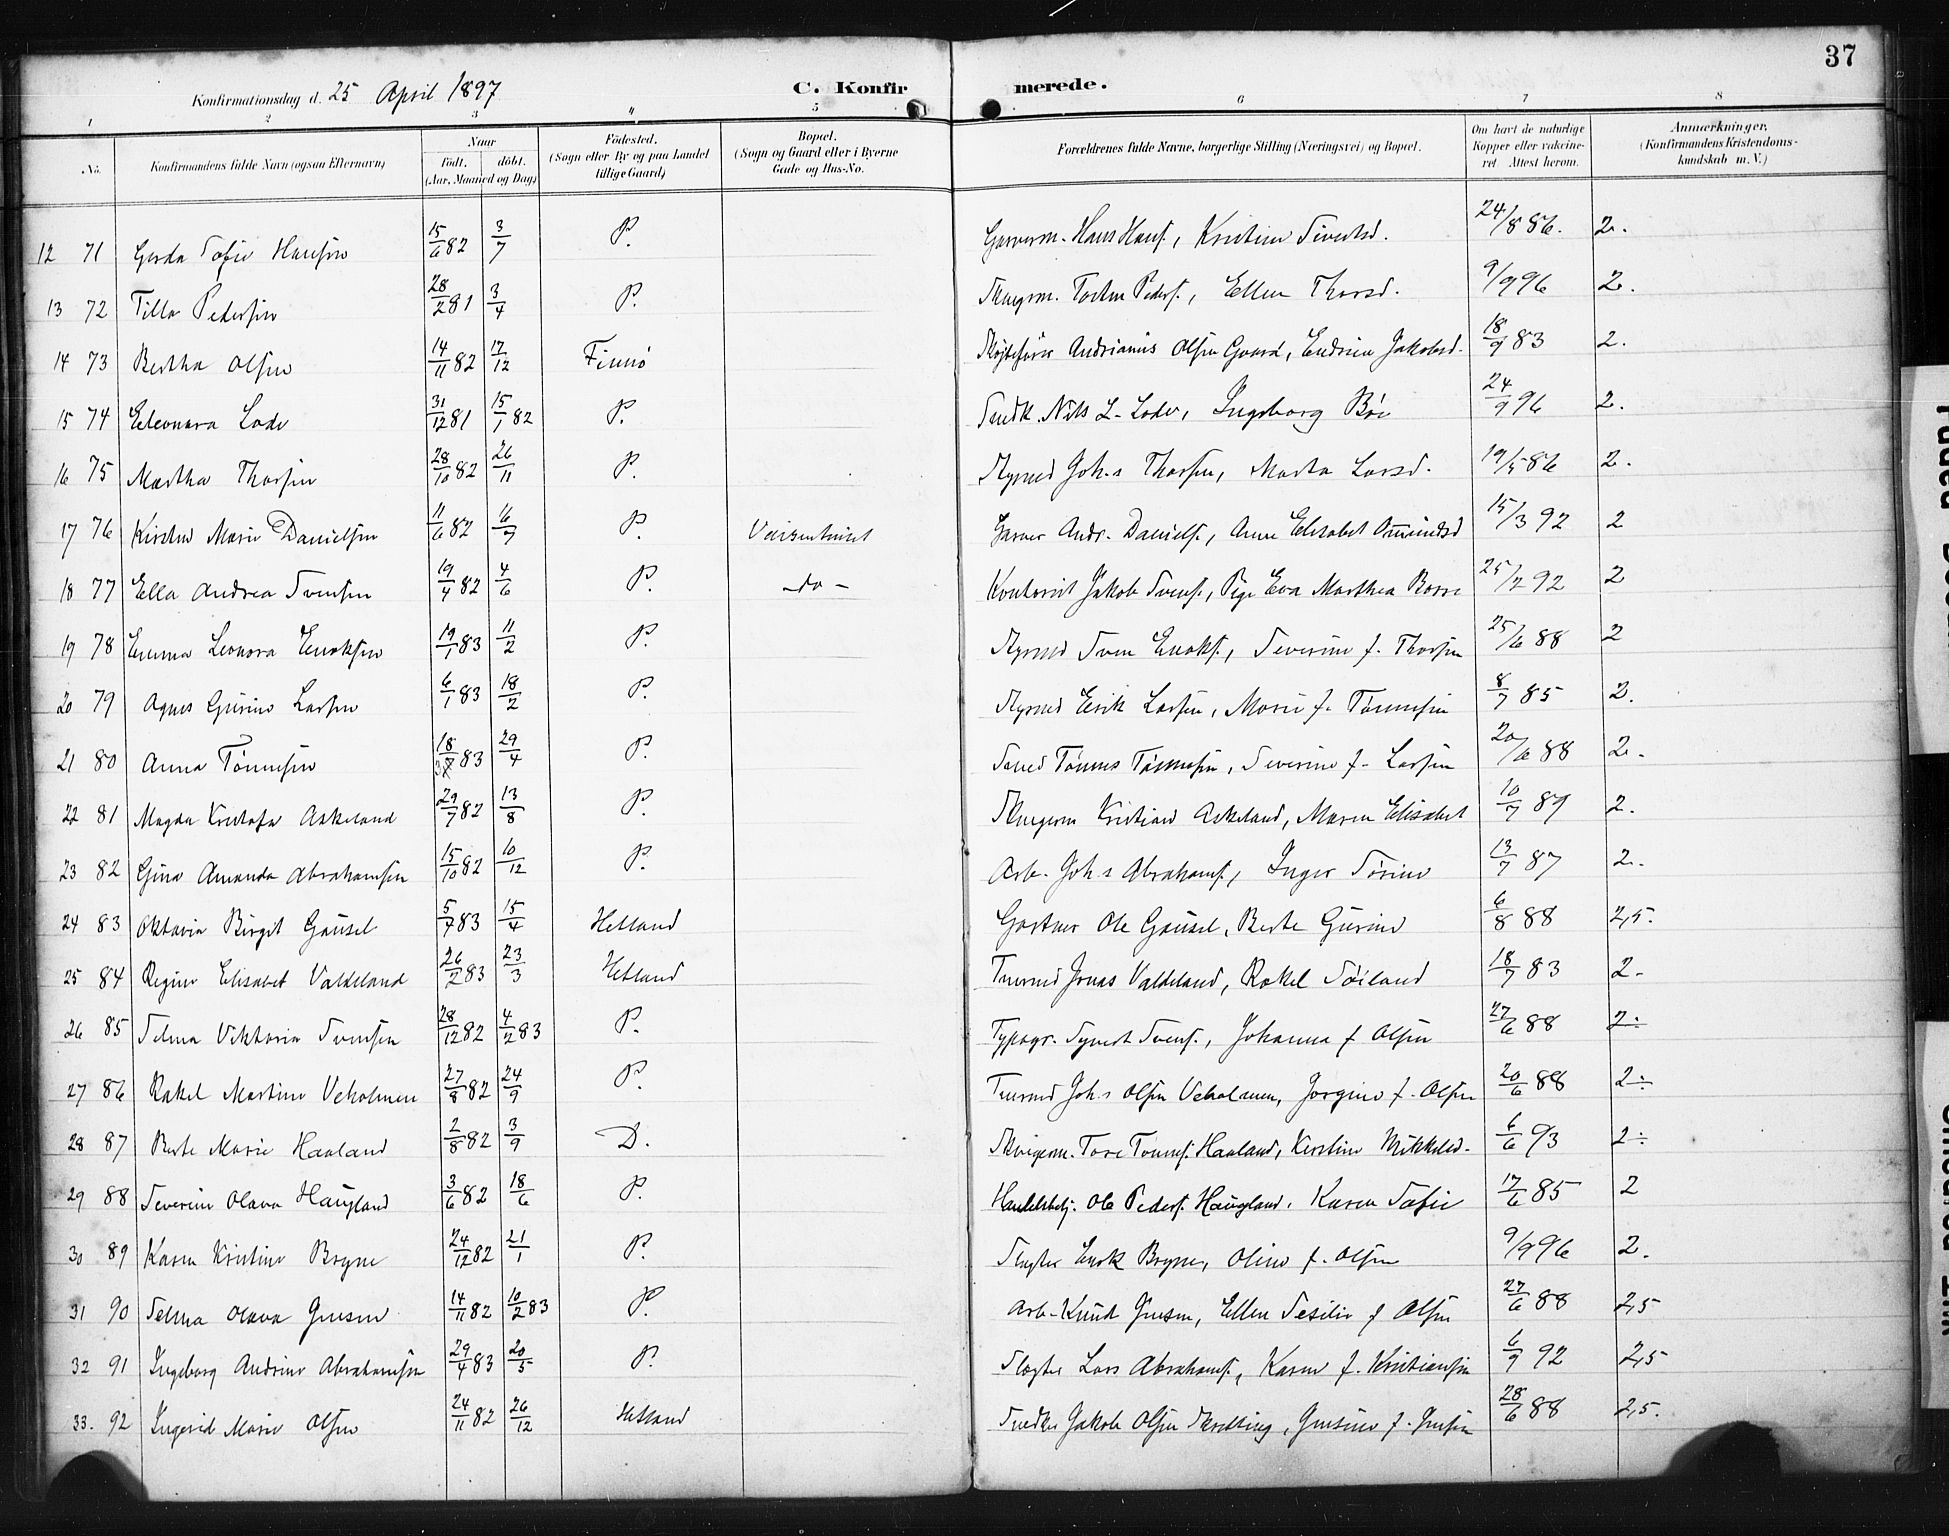 37
Konfirmationsdag d. 25 April 1897 C. Konfir merede.
1 2 3 4 5 6 7 8
No. Konfirmandens fulde Navn (ogsaa Efternavn) Naar födt. döbt. (Aar, Maaned og Dag) Födested. (Sogn eller By og paa Landet tillige Gaard) Bopæl. (Sogn og Gaard eller i Byerne Gade og Hus-No. Forældrenes fulde Navne, borgerlige Stilling (Næringsvei) og Bopæl. Om havt de naturlige Kopper eller vakcineret Attest herom. Anmærkninger. (Konfirmandens Kristendomskundskab m. V.)
12 71 Gerda Sofie Hansen 15/6 82 3/7 P. Garverm. Hans Hans., Kristine Sivertsd. 24/8 86. 2.
13 72 Tilla Pedersen 28/2 81 3/4 P. Peders., Ellen Thorsd. 9/9 96 2.
14 73 Bertha Olsen 14/11 82 17/12 Finnö Andrianus Olsen Gaard, Endrien Jakobsd. 18/9 83 2.
15 74 Eleonora Lode 31/12 81 15/1 82 P. Snedk. Nils L. Lode, Ingeborg Böe 24/9 96 2.
16 75 Martha Thorsen 28/10 82 26/11 P. Styrmd Joh.s Thorsen, Marta Larsd. 19/5 86 2.
17 76 Kirstine Marie Danielsen 11/6 82 16/7 P. Vaisenhuset Garver Andr. Daniels., Anne Elisabet Omundsd 15/3 92 2
18 77 Ella Andrea Svensen 19/4 82 4/6 P. - do - Kontorist Jakob Svens., Pige Eva Marthea 25/2 92 2
19 78 Emma Leonora Enoksen 19/1 83 11/2 P. Styrmd Sven Enoks., Severine f. Thorsen 25/6 88 2
20 79 Agnes Gurine Larsen 6/1 83 18/2 P. Styrmd Eirik Larsen, Marie f. Tönnesen 8/7 85 2.
21 80 Anna Tönnesen 18/3 83 29/4 P. Tönnes Tönnesen, Severine f. Larsen 20/6 88 2.
22 81 Magda Kristofa Askeland 29/7 82 13/8 P. Kristian Askeland, Maren Elisabet 10/7 89 2.
23 82 Gina Amanda Abrahamsen 15/10 82 10/12 P. Arb. Joh.s Abrahams., Inger Sörine 13/7 87 2.
24 83 Oktavia Birgit Gausel 5/4 83 15/4 Hetland Gartner Ole Gausel, Berte Gurine 6/8 88 2,5.
25 84 Regine Elisabet Valdeland 26/2 83 23/3 Hetland Tmrmd Jonas Valdeland, Rakel Söiland 18/7 83 2-
26 85 Selma Viktoria Svensen 28/12 82 4/2 83 P. Typogr. Syvert Svens., Johanna f Olsen 27/6 88 2÷
27 86 Rakel Martine Veholmen 27/8 82 24/9 P. Tmrmd Joh.s Olsen Veholmen, Jorgine f. Olsen 20/6 88 2÷
28 87 Berte Marie Haaland 2/8 82 3/9 D. Tore Tönnes. Haaland, Kirstine Mikkelsd. 6/6 93 2÷
29 88 Severine Olava Haugland 3/6 82 18/6 P. Handelsbetj. Ole Peders. Haugland, Karen Sofie 17/6 85 2
30 89 Karen Kristine Bryne 24/12 82 21/1 P. Slagter Enok Bryne, Oline f. Olsen 9/9 96 2.
31 90 Selma Olava Jensen 14/11 82 10/2 83 P. Arb. Knud Jensen, Ellen Sesilie f Olsen 27/6 88 2,5
32 91 Ingeborg Andrine Abrahamsen 29/4 83 20/5 P. Slagter Lars Abrahams., Karen f. Kristiansen 6/9 92 2,5
33. 92 Ingerid Marie Olsen 24/11 82 26/12 Hetland Snedker Jakob Olsen, Jensine f. Jensen 28/6 88 2,5.